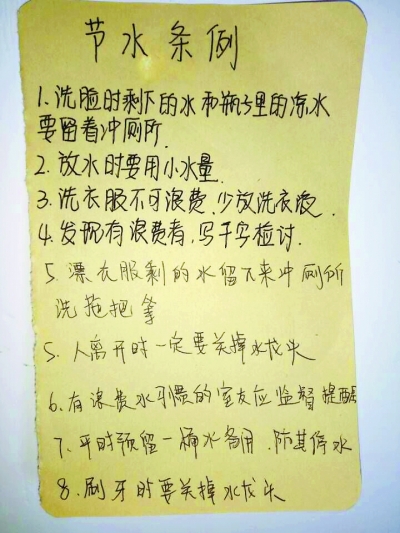 节水条例
1.洗脸时剩下的水和瓶子里的凉水
要留着冲厕所.
2.放水时要用小水量.
3.洗衣服不可浪费.少放洗衣液.
4.发现有浪费者,写千字检讨.
5.漂衣服剩的水留下来冲厕所
洗拖把等
5.人离开时一定要关掉水龙头
6.有浪费水习惯的室友应监督提醒
7.平时预留一桶水备用.防其停水
8.刷牙时要关掉水龙头